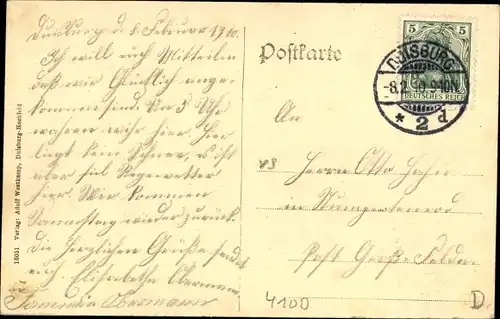 Duisburg d. 8. Februar 1910.
Ich will euch Mitteilen
daß wir Glücklich ange-
kommen sind. Um 3 Uhr
wahren wihr hier. Hier
liegt kein Schnee, es ist
aber viel Regenwetter
hier. Wir kommen
Donnerstag wieder zurück.
Die Herzlichen Grüße sendet
euch. Elisabetha Obermann
Obermann
16051 Verlag: Adolf Westkamp, Duisburg-Hochfeld
Postkarte
5 5
DEUTSCHES REICH
DUISBURG
-8.2.10.9-10N
* 2 d
An
Herrn Otto Hahn
in
Post Groß-Felda
4100
D